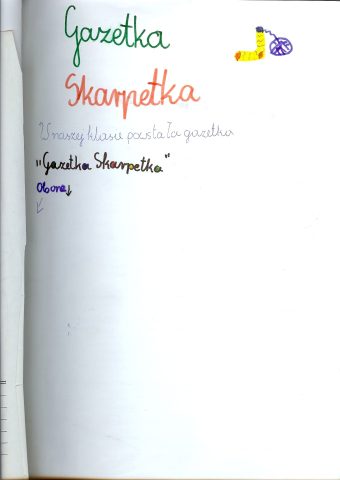 Gazetka
Skarpetka
W naszej klasie powstała gazetka
"Gazetka Skarpetka"
Oto ona